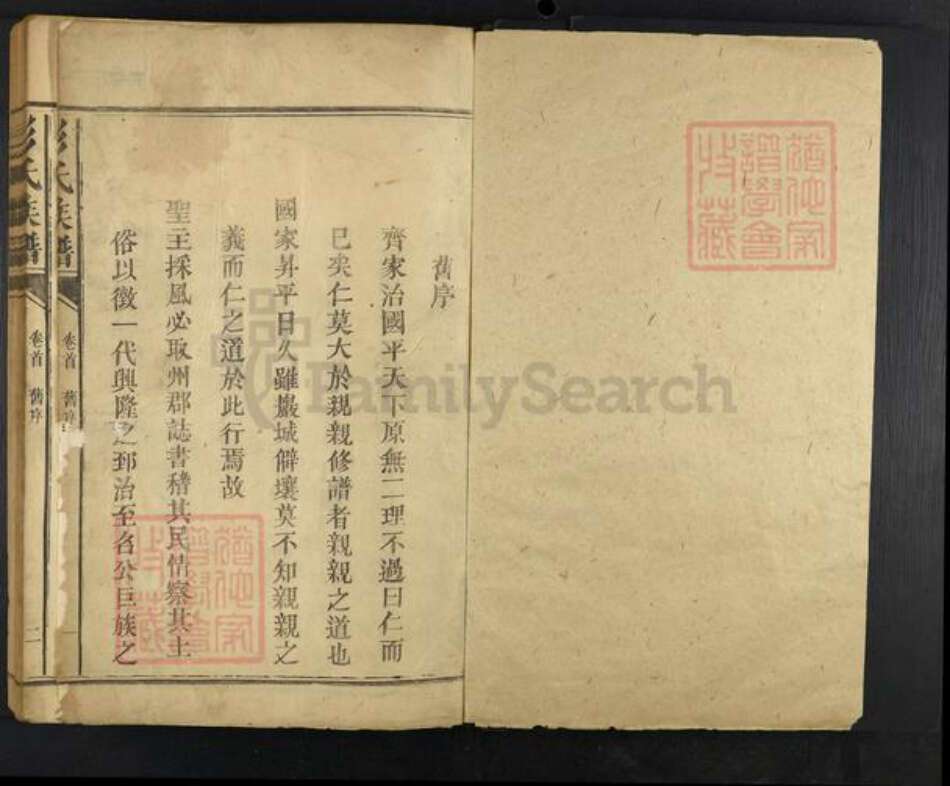 舊序
齊家治國平天下原無二理不過曰仁而
已矣仁莫大於親親修譜者親親之道也
國家昇平日久雖巖城僻壤莫不知親親之
義而仁之道於此行焉故
聖主採風必取州郡誌書稽其民情察其土
俗以徵一代興隆之郅治至名公巨族之
彭氏族譜 卷首 舊序 一
彭氏族譜 卷首 舊序 二
FamilySearch